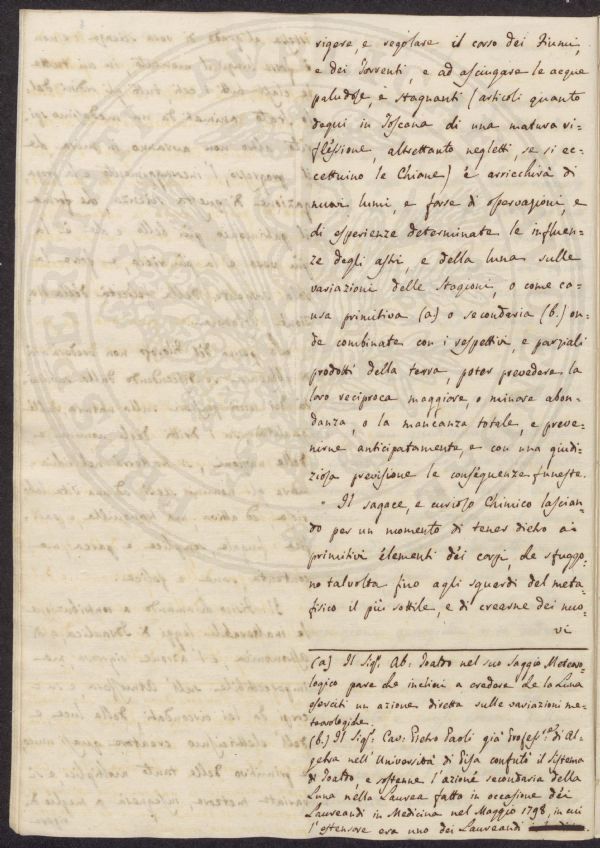 rigere, e regolare il corso dei Fiumi,
e dei Torrenti, e ad asciugare le acque
paludose, e Stagnanti (articoli quanto
degni in Toscana di una matura ri-
flessione, altrettanto negletti, se si ec-
cettuino le Chiane) è arricchirà di
nuovi lumi, e forse di osservazioni, e
di esperienze determinate le influen-
ze degli astri, e della luna sulle
variazioni delle Stagioni, o come ca-
usa primitiva (a) o secondaria (b.) on-
de combinate con i respettivi, e parziali
prodotti della terra, poter prevedere la
loro reciproca maggiore, o minore abon-
danza, o la mancanza totale, e preve-
nirne anticipatamente, e con una giudi-
ziosa previsione le conseguenze funeste.
Il sagace, e curioso Chimico lascian-
do per un momento di tener dietro ai
primitivi elementi dei corpi, che sfuggo-
no talvolta fino agli sguardi del meta-
fisico il più sottile, e di crearne dei nuo-
vi
(a) Il Sigr. Ab: Toaldo nel suo Saggio Meteoro-
logico pare che inclini a credere che la Luna
eserciti un azione diretta sulle variazioni me-
teorologiche.
(b.) Il Sigr. Cav: Pietro Paoli già Professre. di Al-
gebra nell'Università di Pisa confutò il Sistema
di Toaldo, e sostenne l'azione secondaria della
Luna nella Laurea fatta in occasione dei
Laureandi in Medicina nel Maggio 1798, in cui
l'estensore era uno dei Laureandi